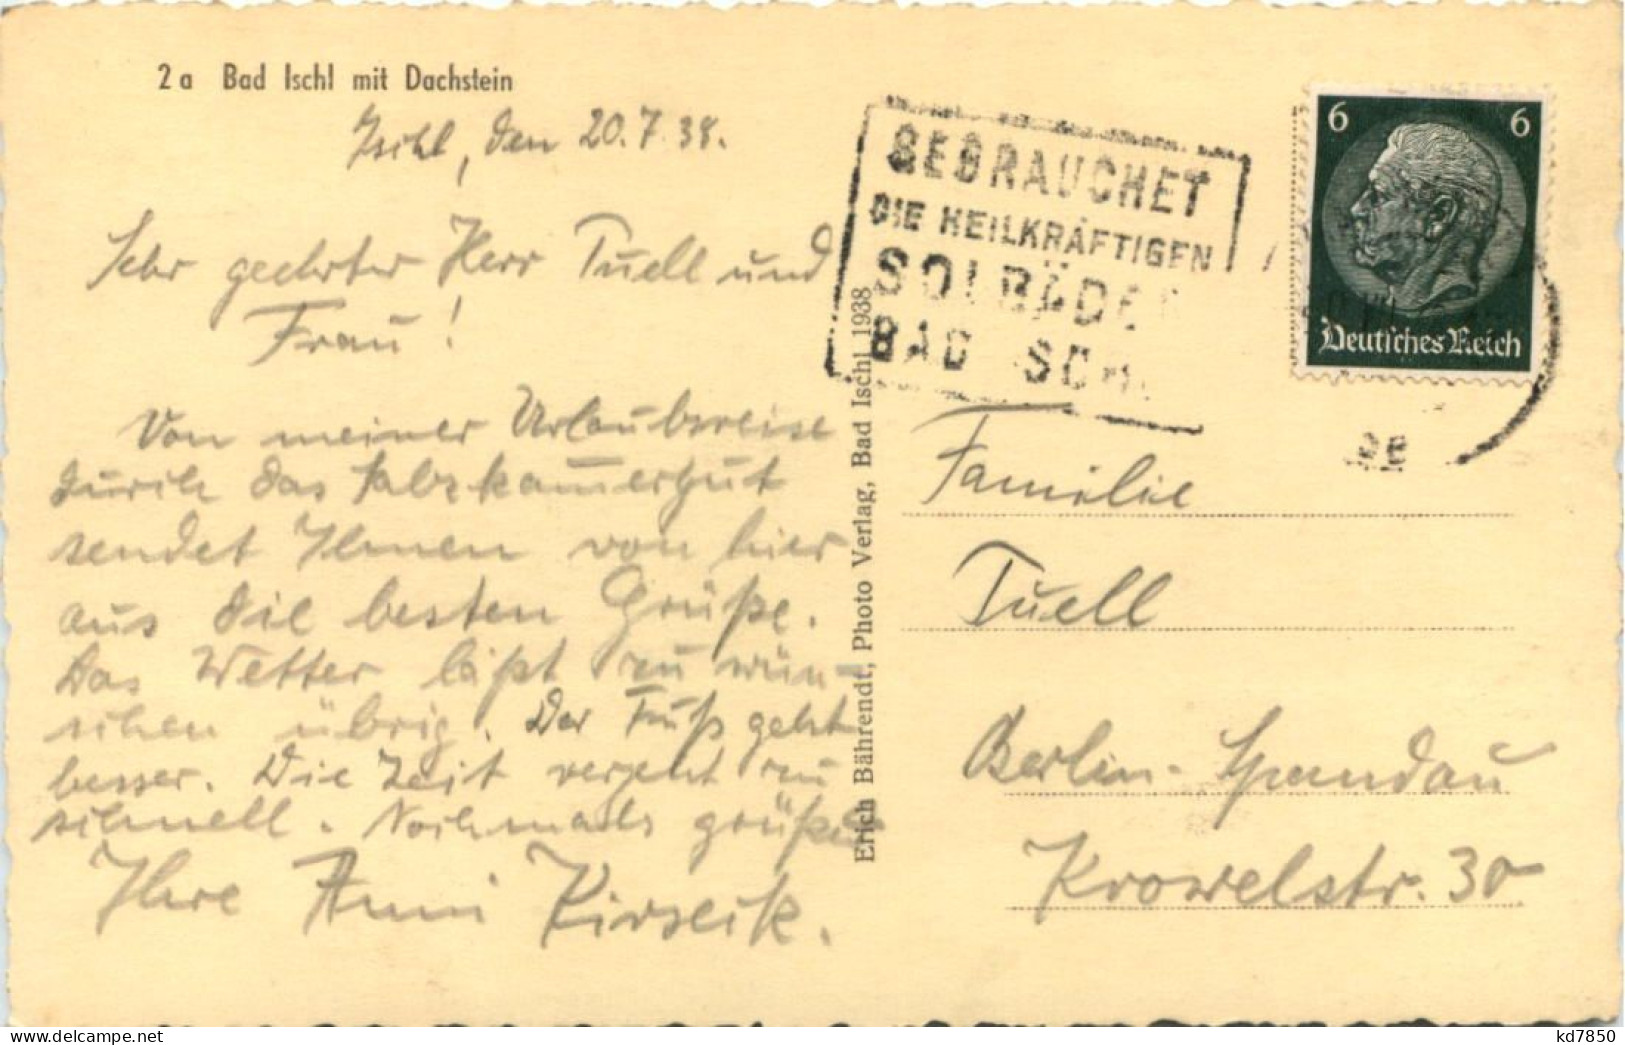 2a Bad Ischl mit Dachstein
Ischl, den 20.7.38.
Sehr geehrter Herr Tuell und
Frau!
Von meiner Urlaubsreise
durch das Salzkammergut
sendet Ihnen von hier
aus die besten Grüße.
Das Wetter läßt zu wün-
schen übrig. Der Fuß geht
besser. Die Zeit vergeht zu
schnell. Nochmals grüßt
Ihre Anni
Erich Bährendt, Photo Verlag, Bad Ischl 1938
GEBRAUCHET
DIE HEILKRÄFTIGEN
SOLBÄDER
BAD ISCHL
6 6
Deutsches Reich
Familie
Tuell
Berlin-Spandau
Krowelstr. 30
kd7850